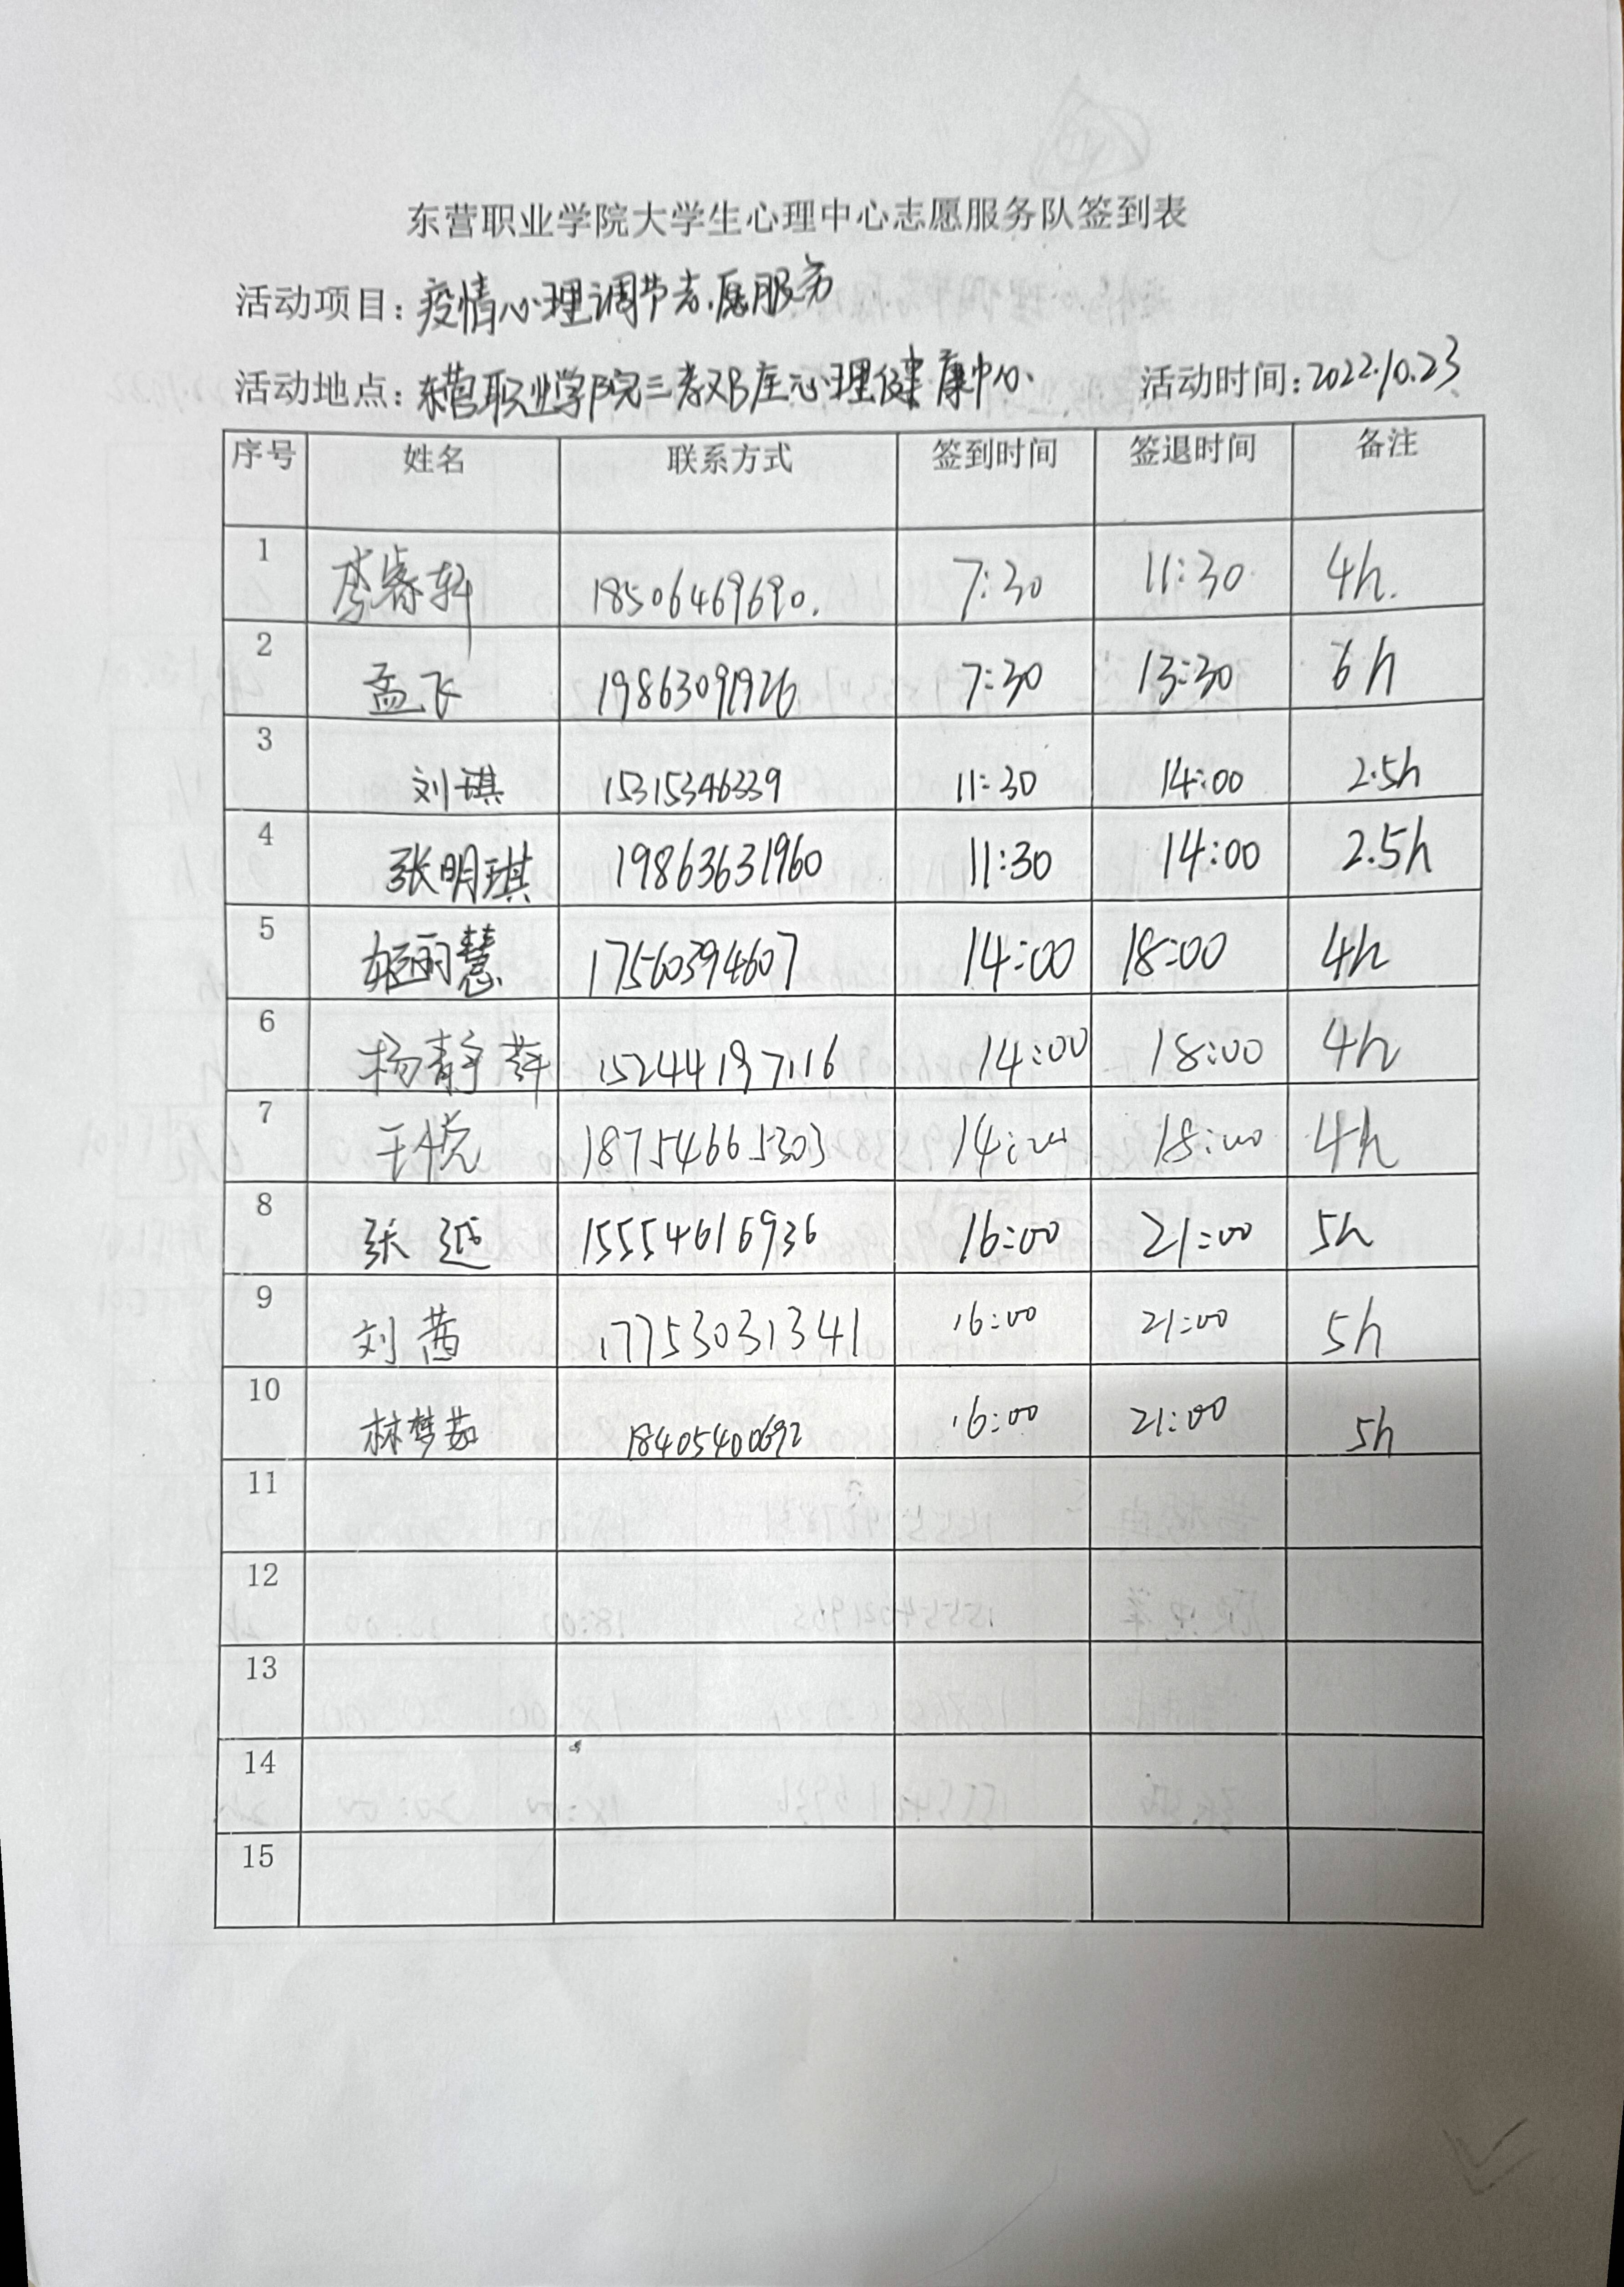 东营职业学院大学生心理中心志愿服务队签到表
活动项目：疫情心理调节志愿服务
活动地点：东营职业学院三教B座心理健康中心 活动时间：2022.10.23
序号 姓名 联系方式 签到时间 签退时间 备注
1 李睿轩 18506469690. 7:30 11:30 4h.
2 孟飞 19863091926 7:30 13:30 6h
3 刘琪 15315346339 11:30 14:00 2.5h
4 张明琪 19863631960 11:30 14:00 2.5h
5 姬丽慧 17560394607 14:00 18:00 4h
6 杨静萍 15244197116 14:00 18:00 4h
7 王悦 18754665303 14:00 18:00 4h
8 张越 15554616936 16:00 21:00 5h
9 刘茜 17753031341 16:00 21:00 5h
10 林梦茹 18405400692 16:00 21:00 5h
11
12
13
14
15